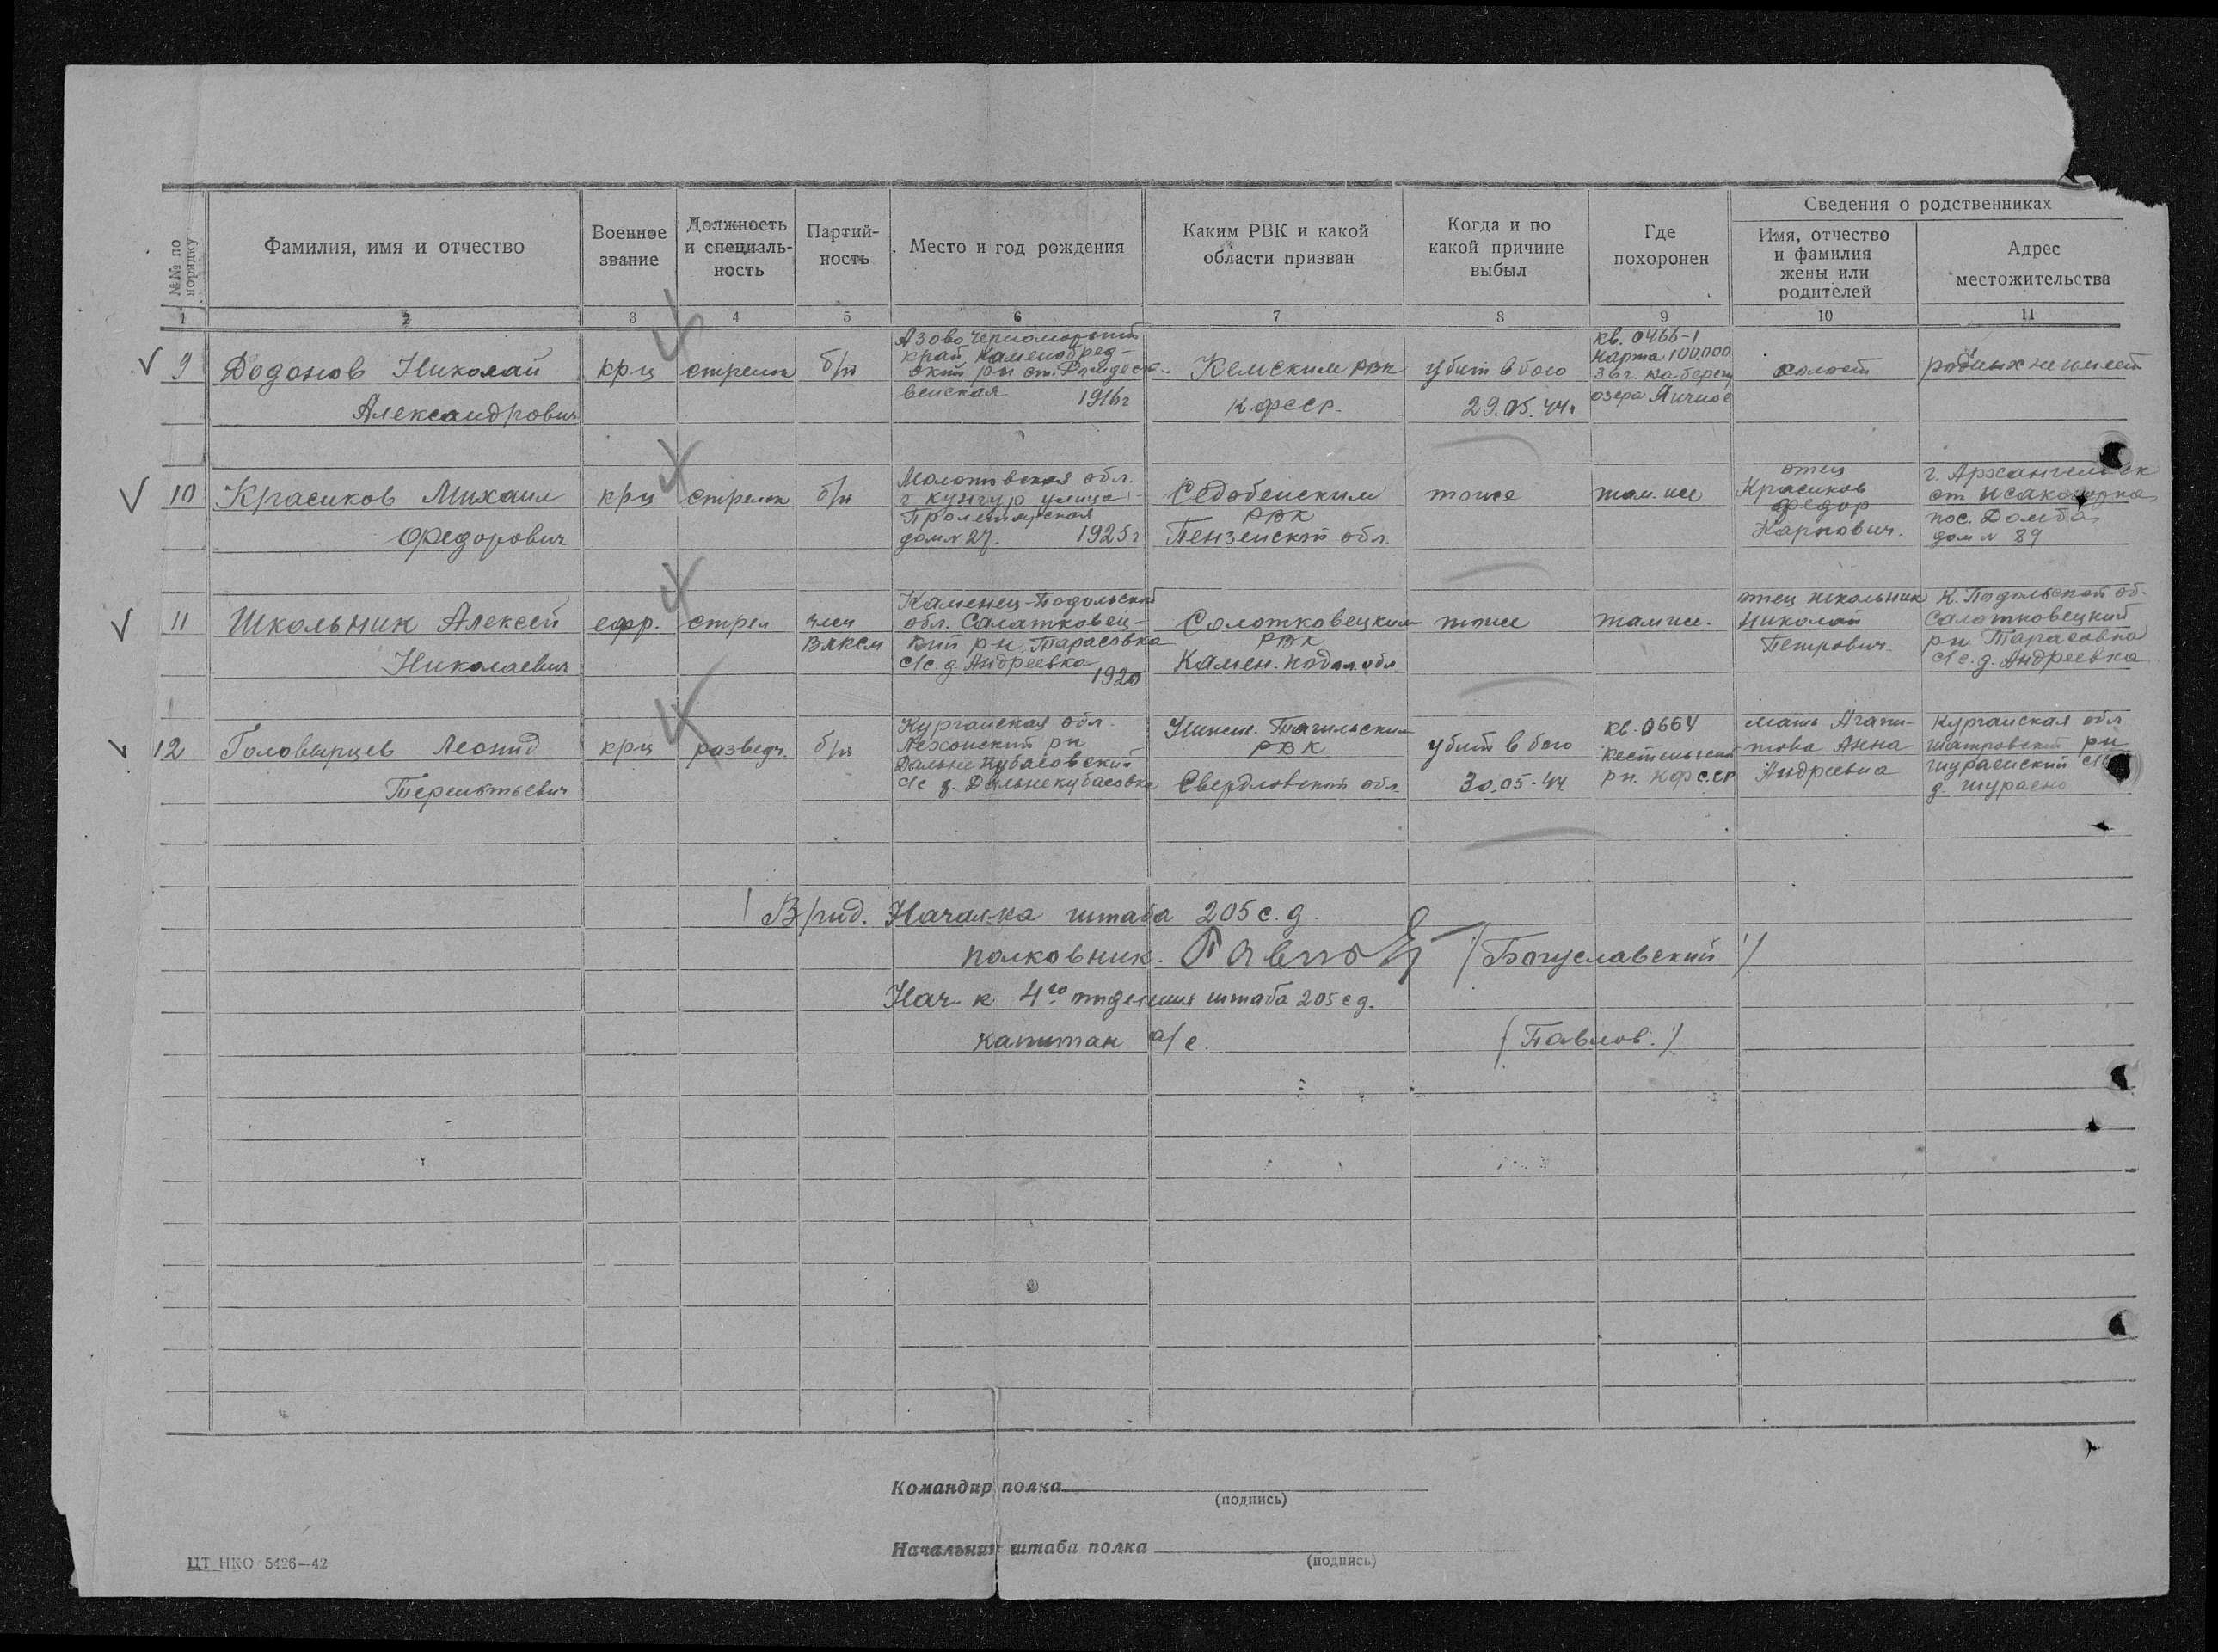 Сведения о родственниках
№№ по порядку
Фамилия, имя и отчество
Военное звание
Должность и специаль-ность
Партий-ность
Место и год рождения
Каким РВК и какой области призван
Когда и по какой причине выбыл
Где похоронен
Имя, отчество и фамилия жены или родителей
Адрес местожительства
1 2 3 4 5 6 7 8 9 10 11
9
Додонов Николай
Александрович
крц
стрелок
б/п
Азово Черноморский
край, Каменобред-
ский рн ст.
1916г
Кемским РВК
КФССР.
убит в бою
29.05.44г
кв. 0466-1
карта 100.000
36г. на берегу
озера
холост
родных не имеет
10
Красиков Михаил
Федорович
крц
стрелок
б/п
Молотовская обл.
г Кунгур улица
Пролетарская
дом№27. 1925г
РВК
Пензенской обл.
тоже
там. же
отец
Красиков
Федор
Карпович.
г. Архангельск
ст Исакогорка
пос. Дамба
дом № 89
11
Школьник Алексей
Николаевич
ефр.
стрел
член
ВЛКСМ
Каменец-Подольской
обл. Салатковец-
кий рн. Тарасовка
с/с. д. Андреевка
1920
Солотковецким
РВК
Камен. подол. обл.
тоже
там же.
отец Школьник
Николай
Петрович.
К. Подольской об.
Салатковецкий
рн Тарасовка
с/с. д. Андреевка
12
Головырцев Леонид
Терентьевич
крц
разведч.
б/п
Курганская обл.
рн
Дальне Кубасовский
с/с д. Дальнекубасовка
Нижн. Тагильским
РВК
Свердловской обл.
убит в бою
30.05-44
кв. 0664
Кестеньгский
рн. КФССР
мать Агапи-
това Анна
Андреевна
Курганская обл
Шатровский рн
с/с
д.
Врид. Начал-ка штаба 205 с. д.
полковник. (Богуславский)
Нач-к 4го отделения штаба 205 сд.
капитан а/с. (Павлов.)
Командир полка
(подпись)
Начальник штаба полка
(подпись)
ЦТ НКО 5426—42